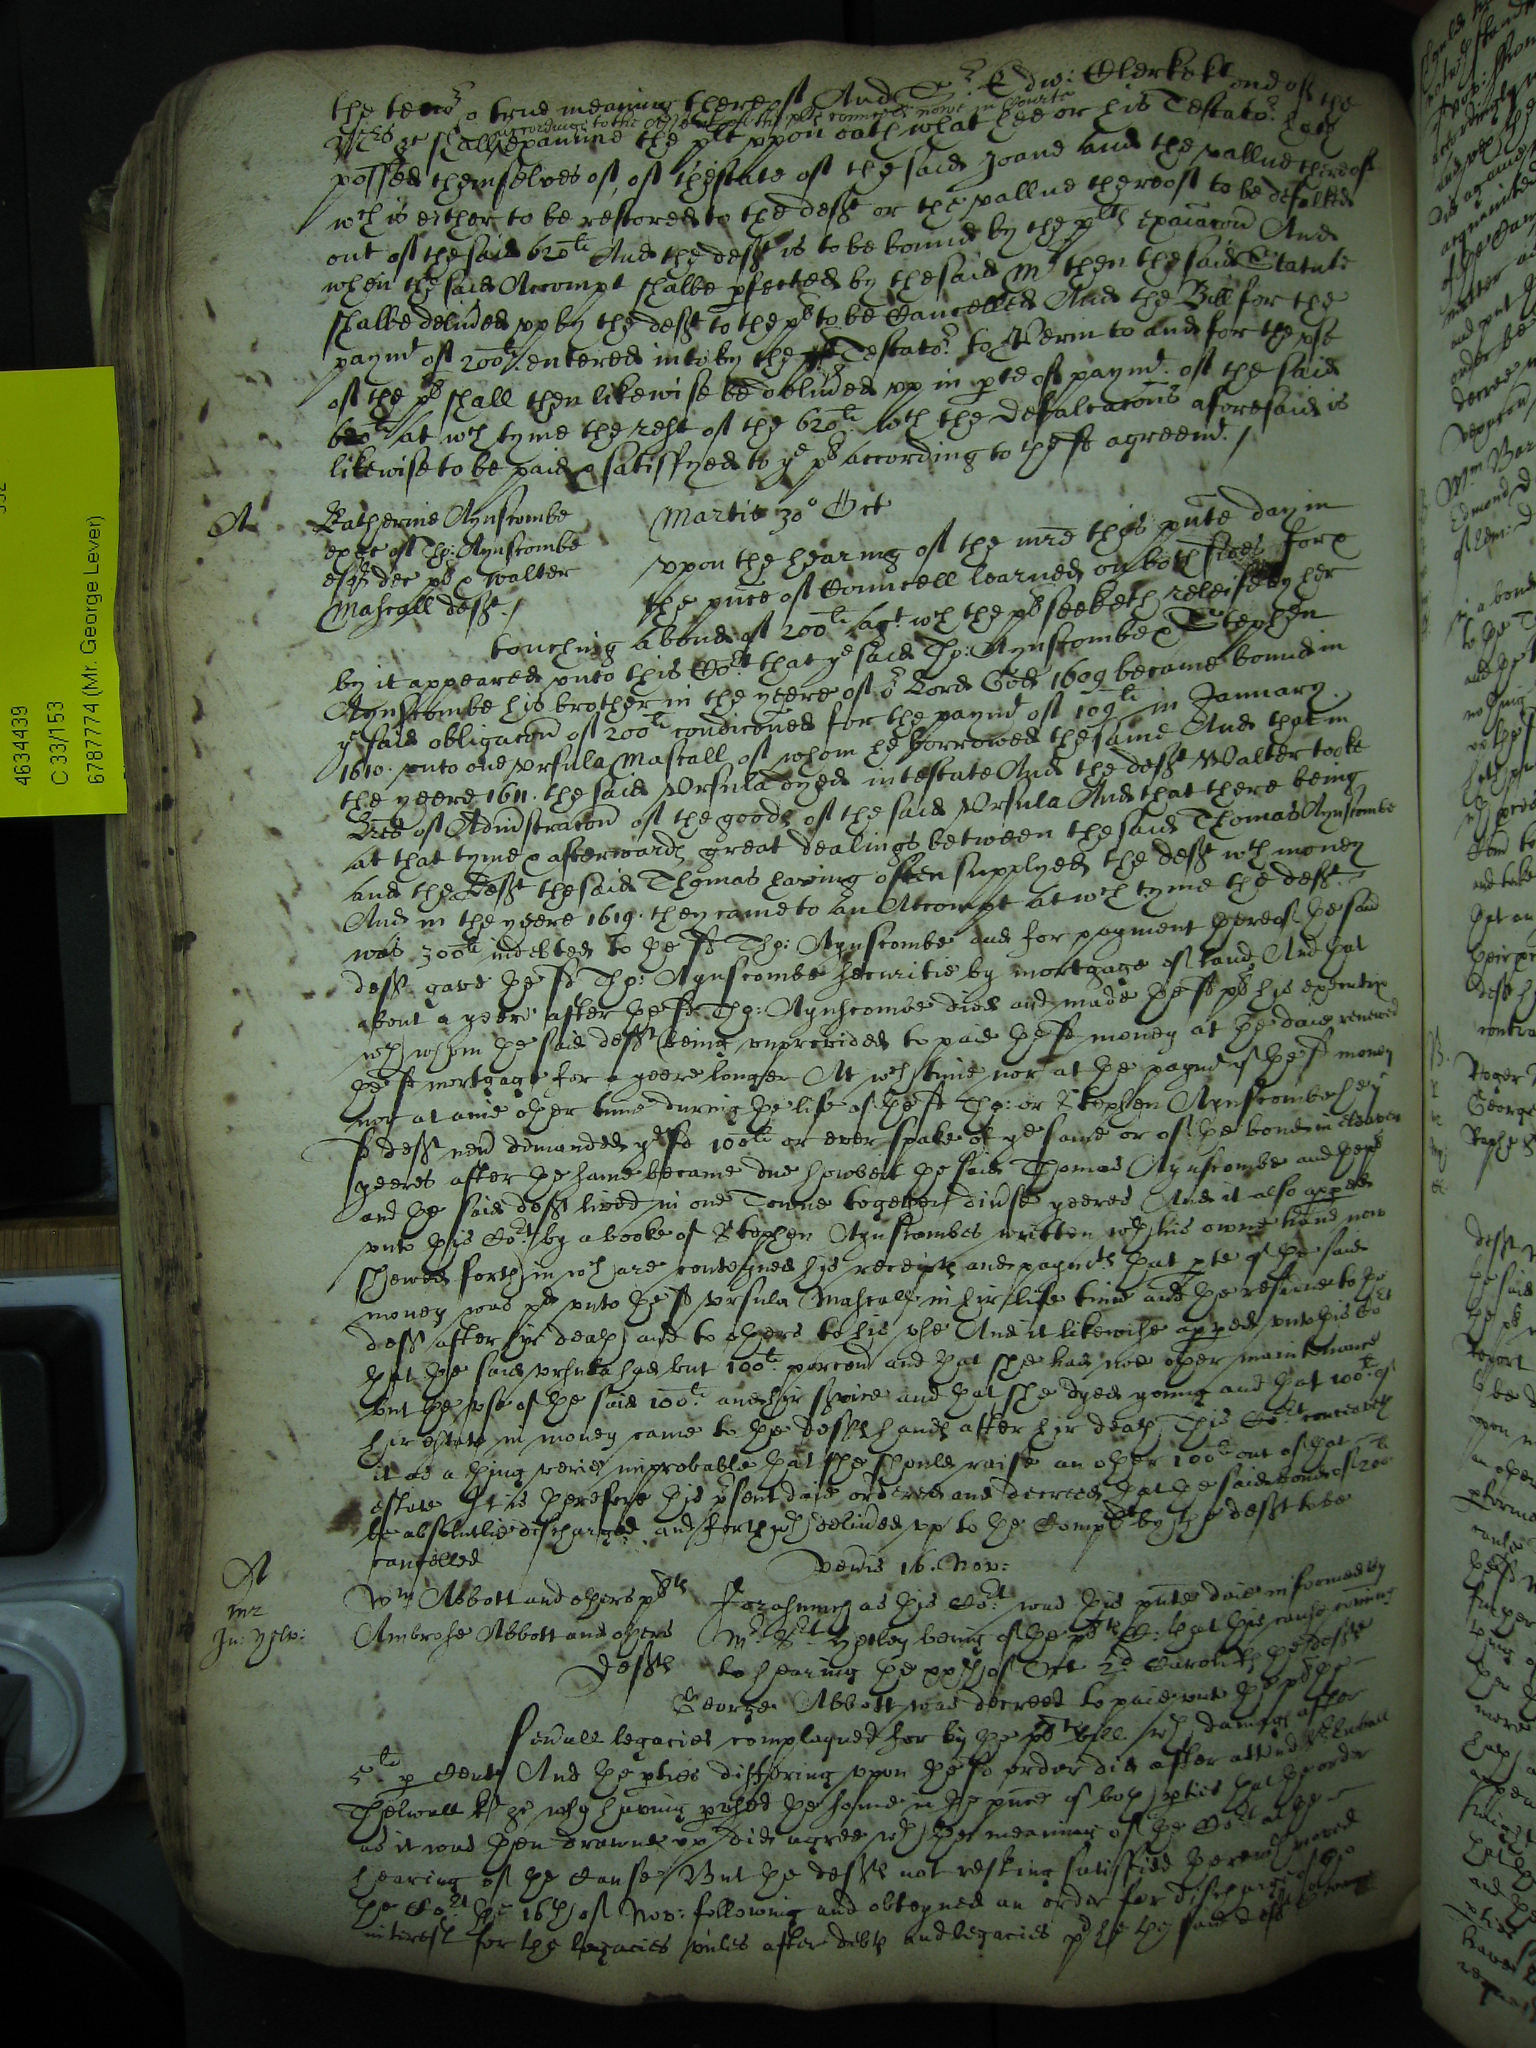 the teno.r & true meaning thereof And S.r Edw: Clerke k.t one of the
M.rs &c shall according to the offer of the pl.ts councell nowe in Courte examine the pl.t vpon oath what hee or his Testato.r hath
possed themselves of, of thestate of the said Joane and the vallue thereof
w.ch is either to be restored to the def.t or the vallue thereof to be defalked
out of the said 620.li And the def.t is to be bound by the pl.ts exaiacon And
when the said Accompt shalbe pfected by the said M.r then the said Statute
shalbe deliued vp by the def.t to the pl. to be Cancelled And the Bill for the
paym.t of 200.li entered into by the Testato.r to Verin to and for the vse
of the pl. shall then likewise be deliued vp in pte of paym.t of the said
620.li at w.ch tyme the rest of the 620.li w.th the defalcacons aforesaid is
likewise to be paid & satisfyed to y.e pl. according to the s.d agreem.t /
A
Katherine Aynscombe
exec of Tho: Aynscombe
esq.r dec pl. & Walter
Mascall def.t /
Martis 30.o Oct
vpon the hearing of the mre this pnte day in
the pnce of Councell learned on both sides for &
touching a bond of 200.li ag.t w.ch the pl. seeketh releife by her
by it appeared vnto this Co.rt that y.e said Tho: Aynscombe & Stephen
Aynscombe his brother in the yeere of o.r Lord God 1609 became bound in
y.e said obligacon of 200.li condiconed for the paym.t of 109.li in January
1610. vnto one Vrsula Mascall of whom he borrowed the same And that in
the yeere 1611. the said Vrsula dyed intestate And the def.t Walter tooke
Lres of Adinstracon of the goods of the said Vrsula And that there being
at that tyme & afterwards great dealings between the said Thomas Aynscombe
and the Def.t the said Thomas having often supplyed the def.t w.th money
And in the yeere 1619. they came to an Accompt at w.ch tyme the def.t
was 300.li indebted to the s.d Tho: Aynscombe and for payment thereof the said
def.t gave the s.d Tho: Aynscombe securitie by mortgage of land And that
about a yeere after the s.d Tho: Aynscombe died and made the s.d pl. his executrix
w.th whom the said def.t being vnprovided to paie the s.d money at the daie renewed
the s.d mortgage for a yeere longer At w.ch time nor at the paym.t of the s.d money
nor at anie other time during the life of the s.d Tho: or Stephen Aynscombe the
s.d def.t neu.r demanded y.e s.d 100.li or ever spake of y.e same or of the bond in eleaven
yeeres after the same became due howbeit the said Thomas Aynscombe and the pl.
and the said def.t lived in one Towne together diuse yeeres And it also appeed
vnto this Co.rt by a booke of Stephen Aynscombes written w.th his owne hand now
shewed forth in w.ch are conteyned his receipts and paym.ts that pte of the said
money was p.d vnto the s.d Vrsula Mascall in hir life time and the residue to the
def.t after hir death and to others to his vse And it likewise appeed vnto this Co.rt
that the said Vrsula had but 100.li porcon and that she had noe other maintenance
but the vse of the said 100.li and hir service and that she dyed young and that 100.li of
hir estate in money came to the def.ts hands after hir death This Co.rt conceaveth
it as a thing verie improbable that she should raise an other 100.li out of that
estate It is therefore this p.rsent daie ordered and decreed that the said bond of 200.li
be absolutlie discharged and forthw.th deliued vp to the Compl.t by the def.t to be
cancelled
Venis 16. Nov:
A
mr
W.m Abbott and others pl.ts
Ambrose Abbott and others
Def.ts
Forasmuch as this Co.rt was this pnte daie informed by
being of the pl.ts C: that this cause coming
to hearing the of Oct 2.d Caroli the def.t
George Abbott was decreed to paie vnto the pl. the
seuall legacies complayned for by the pl.ts bill w.th damages after
5.li p Cent And the pties differing vpon the s.d order did after attend S.r Eubull
Thelwall k.t &c who having pvsed the same in the pnce of both pties that the order
as it was then drawne vp did agree w.th the meaning of the Co.rt at the
hearing of the Cause / But the def.ts not resting satisfied therew.th moved
the Co.rt the 16.th of Nov: following and obteyned an order for discharge of the
interest for the legacies vnles after debts and legacies p.d the said def.t
4634439
C 33/153
67877774 (Mr. George Lever)